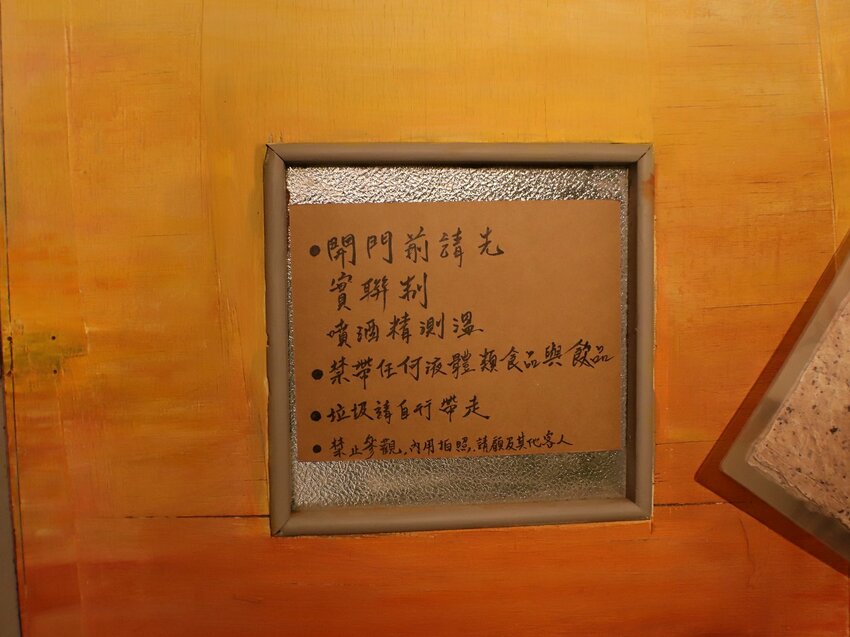 ●開門前請先
實聯制
噴酒精測溫
●禁帶任何液體類食品與飲品
●垃圾請自行帶走
●禁止參觀,內用拍照,請顧及其他客人